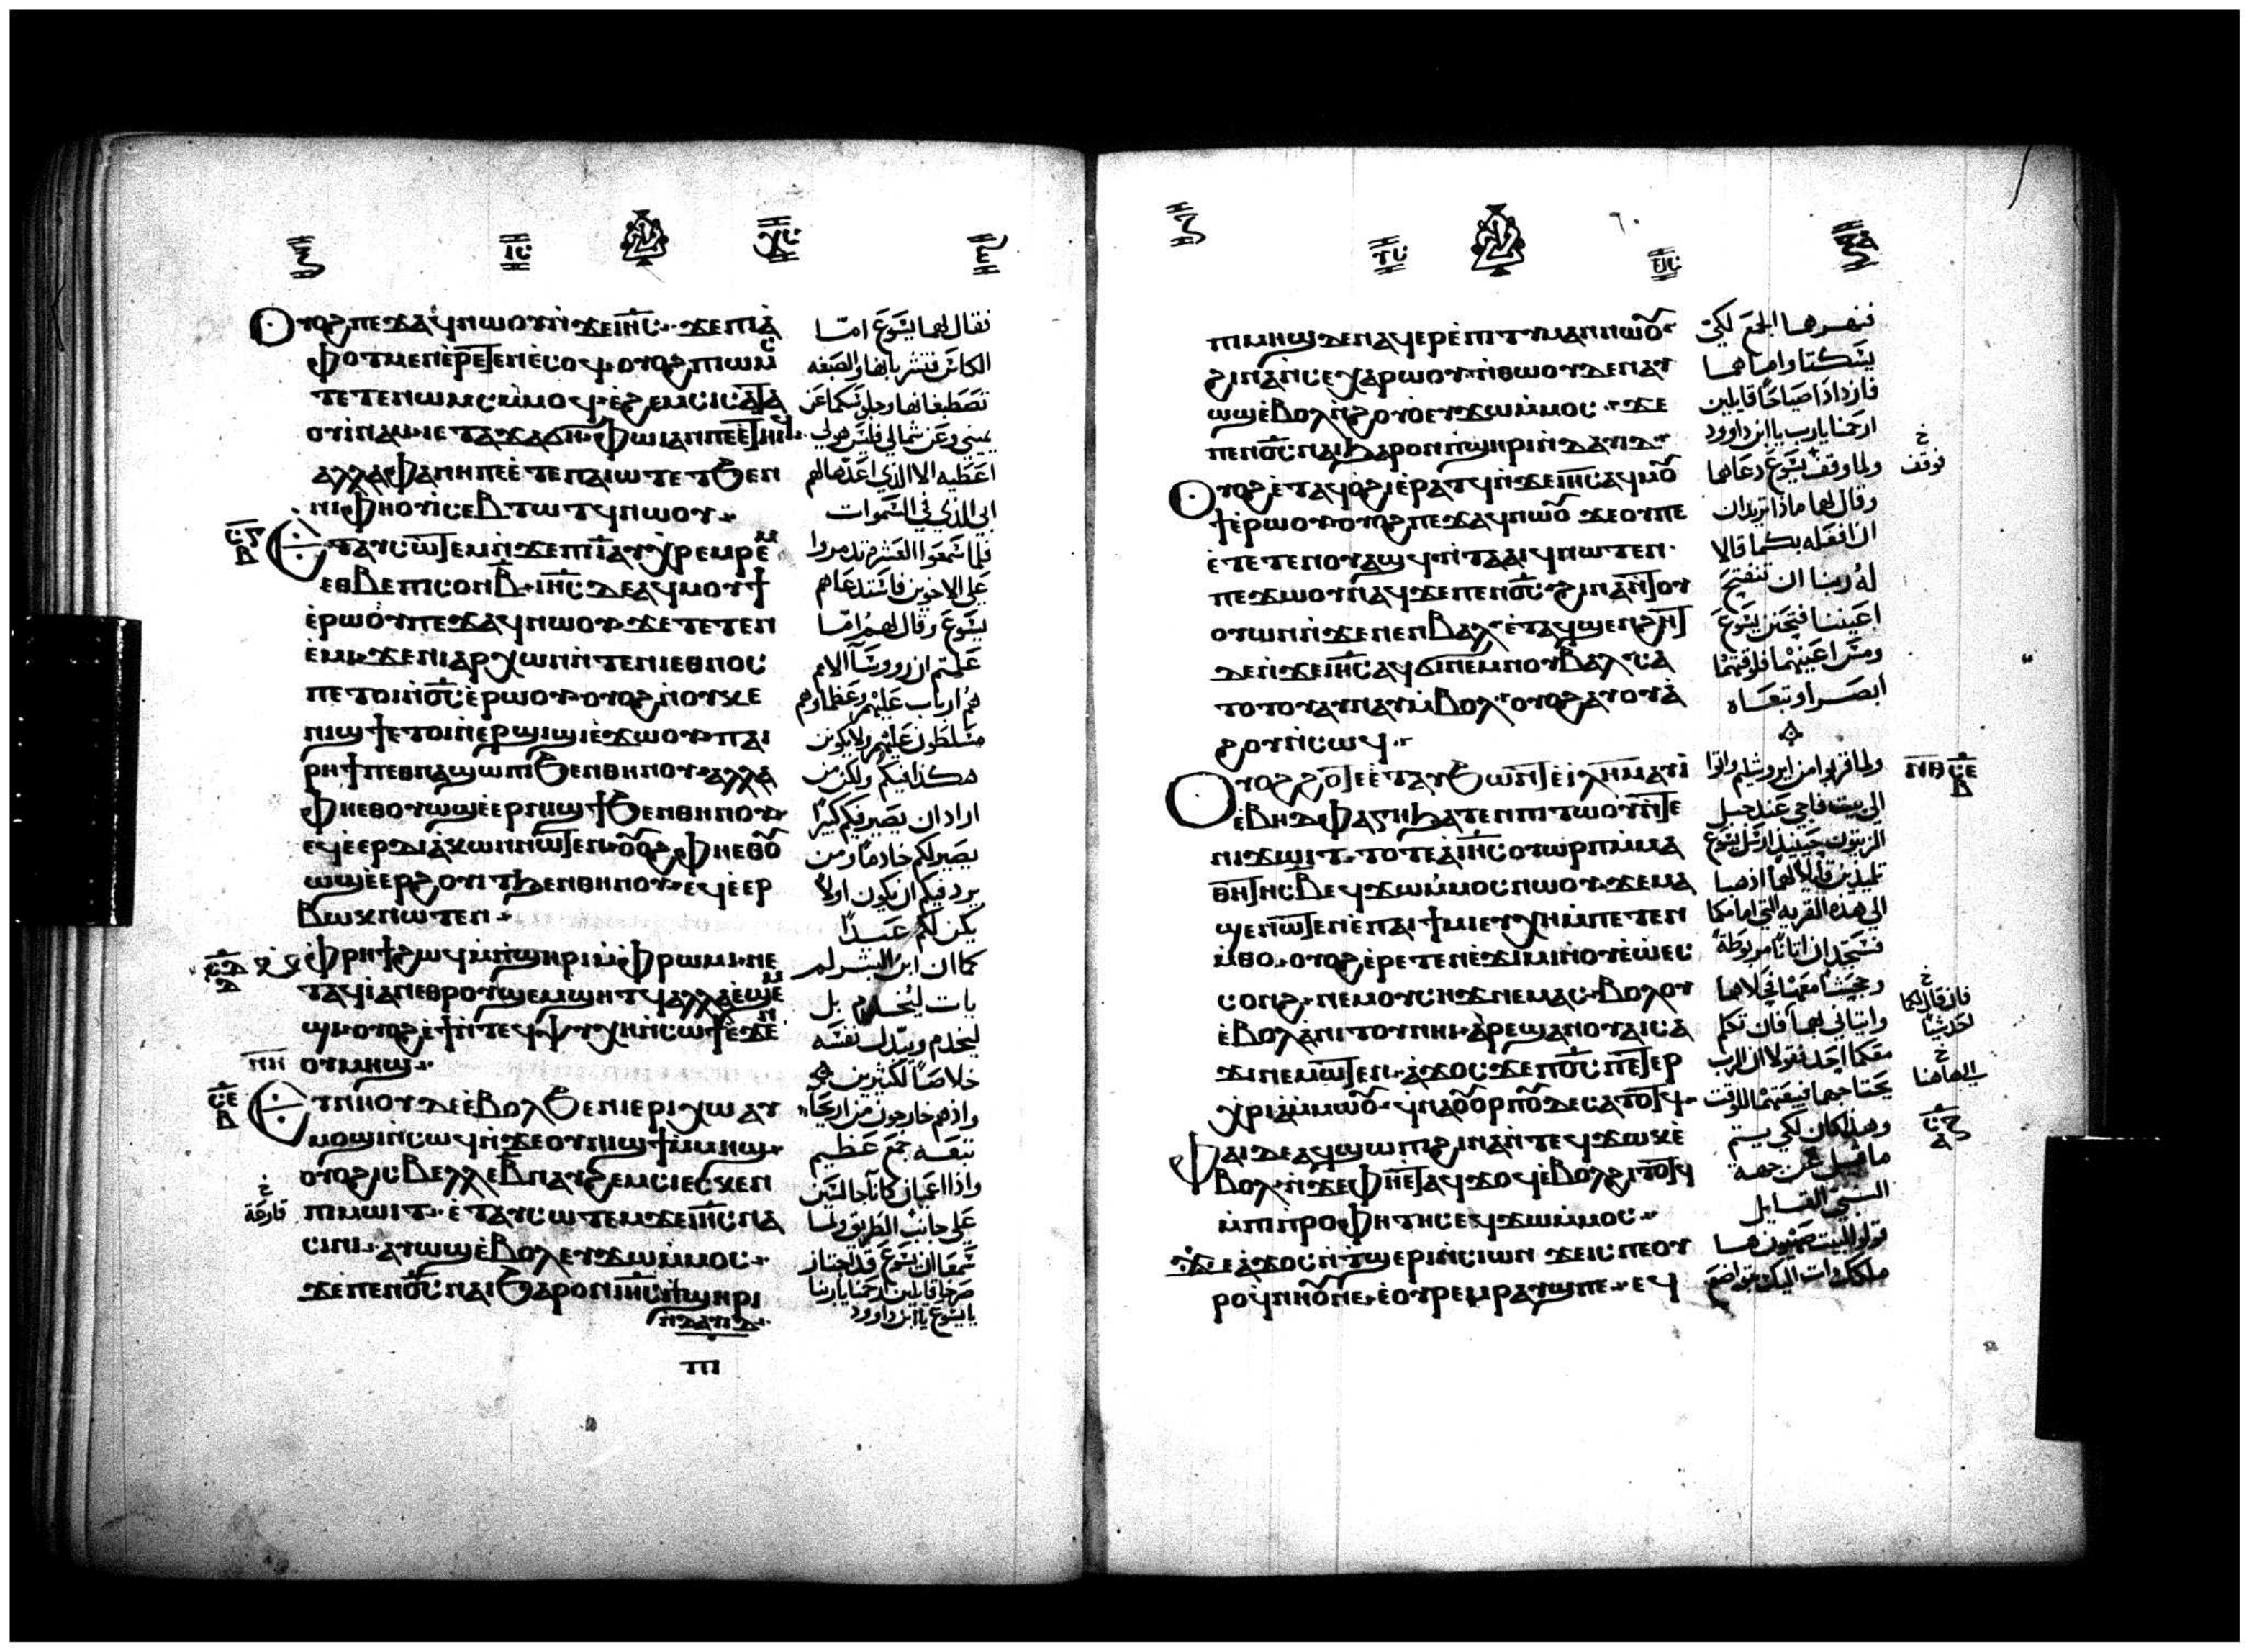 Ⲟⲩⲟϩ ⲡⲉϫⲁϥ ⲛⲱⲟⲩ ⲛ̀ϫⲉ ⲓⲏ̅ⲥ̅ ϫⲉ ⲡⲓⲁ̀
ⲫⲟⲧ ⲙⲉⲛ ⲉ̀ⲣⲉⲧⲉⲛⲉ̀ⲥⲟϥ ⲟⲩⲟϩ ⲡⲓⲱⲙⲥ
ⲧⲉⲧⲉⲛⲱⲙⲥ ⲙ̀ⲙⲟϥ ⲉ̀ϩⲉⲙⲥⲓ ⲥⲁⲧⲁ
ⲟⲩⲓ̀ⲛⲁⲙ ⲓⲉ ⲧⲁϫⲁϭⲏ ⲫⲱⲓ ⲁⲛ ⲡⲉ ⲉ̀ⲧⲏⲓϥ
ⲁⲗⲗⲁ ⲫⲁ ⲛⲏ ⲡⲉ ⲉ̀ⲧⲉ ⲡⲁⲓⲱⲧ ⲉⲧϧⲉⲛ
ⲛⲓⲫⲏⲟⲩⲓ̀ ⲥⲉⲃⲧⲱⲧϥ ⲛⲱⲟⲩ
Ⲉⲧⲁⲩⲥⲱⲧⲉⲙ ⲛ̀ϫⲉ ⲡⲓⲓ̅ ⲁⲩⲭⲣⲉⲙⲣⲉⲙ
ⲉⲑⲃⲉ ⲡⲓⲥⲟⲛ ⲃ̅ ⲓⲏ̅ⲥ̅ ⲇⲉ ⲁϥⲙⲟⲩϯ
ⲉ̀ⲣⲱⲟⲩ ⲡⲉϫⲁϥ ⲛⲱⲟⲩ ϫⲉ ⲧⲉⲧⲉⲛ
ⲉ̀ⲙⲓ ϫⲉ ⲛⲓⲁⲣⲭⲱⲛ ⲛ̀ⲧⲉ ⲛⲓⲉⲑⲛⲟⲥ
ⲡⲉⲧⲟⲓ ⲛ̀ⲟ̅ⲥ̅ ⲉ̀ⲣⲱⲟⲩ ⲟⲩⲟϩ ⲛⲟⲩⲕⲉ
ⲛⲓϣϯ ⲉⲧⲟⲓ ⲛ̀ⲉⲣϣⲓϣⲓ ⲉ̀ϫⲱⲟⲩ ⲡⲁⲓ
ⲣⲏϯ ⲡⲉⲑⲛⲁϣⲱⲡⲓ ϧⲉⲛ ⲑⲏⲛⲟⲩ ⲁⲗⲗⲁ
ⲫⲏ ⲉⲑⲟⲩⲱϣ ⲉ̀ⲉⲣⲛⲓϣϯ ϧⲉⲛ ⲑⲏⲛⲟⲩ
ⲉϥⲉ̀ⲉⲣⲇⲓⲁ̀ⲕⲱⲛ ⲛⲱⲧⲉⲛ ⲟⲩⲟϩ ⲫⲏ ⲉⲑⲟⲩ
ⲱϣ ⲉ̀ⲉⲣϩⲟⲩⲓⲧ ϧⲉⲛ ⲑⲏⲛⲟⲩ ⲉϥⲉ̀ⲉⲣ
ⲃⲱⲕ ⲛⲱⲧⲉⲛ
ⲙ̀ⲫⲣⲏϯ ϩⲱϥ ⲙ̀ⲡ̀ϣⲏⲣⲓ ⲙ̀ⲫⲣⲱⲙⲓ ⲛⲉ
ⲧⲁϥⲓ̀ ⲁⲛ ⲉⲑⲣⲟⲩϣⲉⲙϣⲏⲧϥ ⲁⲗⲗⲁ ⲉ̀ϣⲉⲙ
ϣⲓ ⲟⲩⲟϩ ⲉ̀ϯ ⲛ̀ⲧⲉϥⲯⲩⲭⲏ ⲛ̀ⲥⲱϯ ⲉ̀ϫⲉⲛ
ⲟⲩⲙⲏϣ
Ⲉⲩⲛⲏⲟⲩ ⲇⲉ ⲉ̀ⲃⲟⲗ ϧⲉⲛ ⲓⲉⲣⲓⲭⲱ ⲁⲩ
ⲙⲟϣⲓ ⲛ̀ⲥⲱϥ ⲛ̀ϫⲉ ⲟⲩⲛⲓϣϯ ⲙ̀ⲙⲏϣ
ⲟⲩⲟϩ ⲓⲥ ⲃⲉⲗⲗⲉ ⲃ̅ ⲛⲁⲩϩⲉⲙⲥⲓ ⲉⲥⲕⲉⲛ
ⲡⲓⲙⲱⲓⲧ ⲉ̀ⲧⲁⲩⲥⲱⲧⲉⲙ ϫⲉ ⲓⲏ̅ⲥ̅ ⲛⲁ
ⲥⲓⲛⲓ ⲁⲩⲱϣ ⲉ̀ⲃⲟⲗ ⲉⲩϫⲱ ⲙ̀ⲙⲟⲥ
ϫⲉ ⲡⲉⲛⲟ̅ⲥ̅ ⲛⲁⲓ ϧⲁⲣⲟⲛ ⲓⲏ̅ⲥ̅ ⲡ̀ϣⲏⲣⲓ
ⲛ̀ⲇⲁⲩⲓⲇ
فقال لهما يسوع امّا
الكاس فتشربانها والصبغه
تصطبغانها وجلوسكما عن
يميني وعن شمالي فليس هو لي
اعطيه الا الذي اعدها لهم
ابي الذي في السموات
فلما سمعوا العشره تدمروا
على الاخوين فاستدعاهم
يسوع وقال لهم امّا
علمتم ان رووسآ الامم
هم ارباب عليهم وعظماوهم
مسلطون عليهم ولا يكون
هكذا فيكم ولكن من
اراد ان يصير فيكم كبيرًا
يصير لكم خادمًا ومن
يرد فيكم ان يكون اولًا
يكن لكم عبدًا
كما ان ابن البشر لم
يات ليُخدم بل
ليخدم ويبدل نفسه
خلاصًا لكثيرين
واذ هم خارجون من اريحا
تبعه جمع عظيم
واذا اعميان كانا جالسَين
على جانب الطريق ولما
سمعا ان يسوع قد اجتاز
صرخا قايلين ارحمنا ياربنا
يا يسوع يا ابن داوود
قارعة
ⲡⲓⲙⲏϣ ⲇⲉ ⲛⲁϥⲉⲣⲉ̀ⲡⲓⲧⲩⲙⲁⲛ ⲛⲱⲟⲩ
ϩⲓⲛⲁ ⲛ̀ⲥⲉⲭⲁⲣⲱⲟⲩ ⲛ̀ⲑⲱⲟⲩ ⲇⲉ ⲛⲁⲩ
ⲱϣ ⲉ̀ⲃⲟⲗ ⲛ̀ϩⲟⲩⲟ ⲉⲩϫⲱ ⲙ̀ⲙⲟⲥ ϫⲉ
ⲡⲉⲛⲟ̅ⲥ̅ ⲛⲁⲓ ϧⲁⲣⲟⲛ ⲡ̀ϣⲏⲣⲓ ⲛ̀ⲇⲁⲩⲓⲇ
Ⲟⲩⲟϩ ⲉ̀ⲧⲁϥⲟϩⲓ ⲉ̀ⲣⲁⲧϥ ⲛ̀ϫⲉ ⲓⲏ̅ⲥ̅ ⲁϥⲙⲟⲩ
ϯ ⲉ̀ⲣⲱⲟⲩ ⲟⲩⲟϩ ⲡⲉϫⲁϥ ⲛⲱⲟⲩ ϫⲉ ⲟⲩ ⲡⲉ
ⲉ̀ⲧⲉⲧⲉⲛⲟⲩⲁϣϥ ⲛ̀ⲧⲁⲁⲓϥ ⲛⲱⲧⲉⲛ
ⲡⲉϫⲱⲟⲩ ⲛⲁϥ ϫⲉ ⲡⲉⲛⲟ̅ⲥ̅ ϩⲓⲛⲁ ⲛ̀ⲧⲟⲩ
ⲟⲩⲱⲛ ⲛ̀ϫⲉ ⲛⲉⲛⲃⲁⲗ ⲉ̀ⲧⲁϥϣⲉⲛϩⲏⲧ
ⲇⲉ ⲛ̀ϫⲉ ⲓⲏ̅ⲥ̅ ⲁϥϭⲓ ⲛⲉⲙ ⲛⲟⲩⲃⲁⲗ ⲥⲁ
ⲧⲟⲧⲟⲩ ⲁⲩⲛⲁⲩ ⲙ̀ⲃⲟⲗ ⲟⲩⲟϩ ⲁⲩⲟⲩⲁ̀
ϩⲟⲩ ⲛ̀ⲥⲱϥ
Ⲟⲩⲟϩ ϩⲟⲧⲉ ⲉ̀ⲧⲁⲩϧⲱⲛⲧ ⲉ̀ⲓⲗ̅ⲏ̅ⲙ̅ ⲁⲩⲓ̀
ⲉ̀ⲃⲏⲇⲫⲁⲅⲏ ϧⲁⲧⲉⲛ ⲡⲓⲧⲱⲟⲩ ⲛ̀ⲧⲉ
ⲛⲓϫⲱⲓⲧ ⲧⲟⲧⲉ ⲁ̀ ⲓⲏ̅ⲥ̅ ⲟⲩⲱⲣⲡ ⲙ̀ⲙⲁ
ⲑⲏⲧⲏⲥ ⲃ̅ ⲉϥϫⲱ ⲙ̀ⲙⲟⲥ ⲛⲱⲟⲩ ϫⲉ ⲙⲁ
ϣⲉⲛⲱⲧⲉⲛ ⲉ̀ⲡⲁⲓϯⲙⲓ ⲉⲧⲭⲏ ⲙ̀ⲡⲉⲧⲉⲛ
ⲙ̀ⲑⲟ ⲟⲩⲟϩ ⲉ̀ⲣⲉⲧⲉⲛⲉ̀ϫⲓⲙⲓ ⲛ̀ⲟⲩⲉ̀ⲱ̀ ⲉⲥ
ⲥⲟⲛϩ ⲛⲉⲙ ⲟⲩⲥⲏϫ ⲛⲉⲙⲁⲥ ⲃⲟⲗⲟⲩ
ⲉ̀ⲃⲟⲗ ⲁ̀ⲛⲓⲧⲟⲩ ⲛⲏⲓ ⲁ̀ⲣⲉϣⲁⲛ ⲟⲩⲁⲓ ⲥⲁ
ϫⲓ ⲛⲉⲙⲱⲧⲉⲛ ⲁ̀ϫⲟⲥ ϫⲉ ⲡⲟ̅ⲥ̅ ⲡⲉⲧⲉⲣ
ⲭⲣⲓⲁ̀ ⲙ̀ⲙⲱⲟⲩ ϥ̀ⲛⲁⲟⲩⲟⲣⲡⲟⲩ ⲇⲉ ⲥⲁⲧⲟⲧϥ
Ⲫⲁⲓ ⲇⲉ ⲁϥϣⲱⲡⲓ ϩⲓⲛⲁ ⲛ̀ⲧⲉϥϫⲱⲕ ⲉ̀
ⲃⲟⲗ ⲛ̀ϫⲉ ⲫⲏ ⲉ̀ⲧⲁϥϫⲟϥ ⲉ̀ⲃⲟⲗ ϩⲓⲧⲟⲧϥ
ⲙ̀ⲡⲓⲡⲣⲟⲫⲏⲧⲏⲥ ⲉϥϫⲱ ⲙ̀ⲙⲟⲥ
ϫⲉ ⲁ̀ϫⲟⲥ ⲛ̀ⲧ̀ϣⲉⲣⲓ ⲛ̀ⲥⲓⲱⲛ ϫⲉ ⲓⲥ ⲡⲉⲟⲩ
ⲣⲟ ϥ̀ⲛⲏⲟⲩ ⲛⲉ ⲉ̀ⲟⲩⲣⲉⲙⲣⲁⲩϣ ⲡⲉ ⲉϥ
فنهرهما الجمع لكي
يسكتا واما هما
فازدادا صياحًا قايلين
ارحمنا يارب يا ابن داوود
ولما وقف يسوع دعاهما
وقال لهما ماذا تريدان
ان افعله بكما قالا
لهُ ربنا ان تنفتح
اعيننا فتحنن يسوع
ومس اعينهما فلوقتهما
ابصرا وتبعاه
ولما قربوا من ايروشليم واتوا
الى بيت فاجي عند جبل
الزيتون حينيذ ارسل يسوع
تلميذين قايلًا لهما اذهبا
الى هذه القريه التي امامكما
فستجدان اتانًا مربوطة
وجحشًا معها فحلاهما
واتياني بهما فان تكلم
معكما احد فقولا ان الرب
يحتاجهما فيبعثهما للوقت
وهذا كان لكي يتم
ما قيل من جهة
النبي القايل
قولوا لابنت صهيون هـا
ملكك وات اليك متواضع
فوقف
فان قال لكما
احد شيا